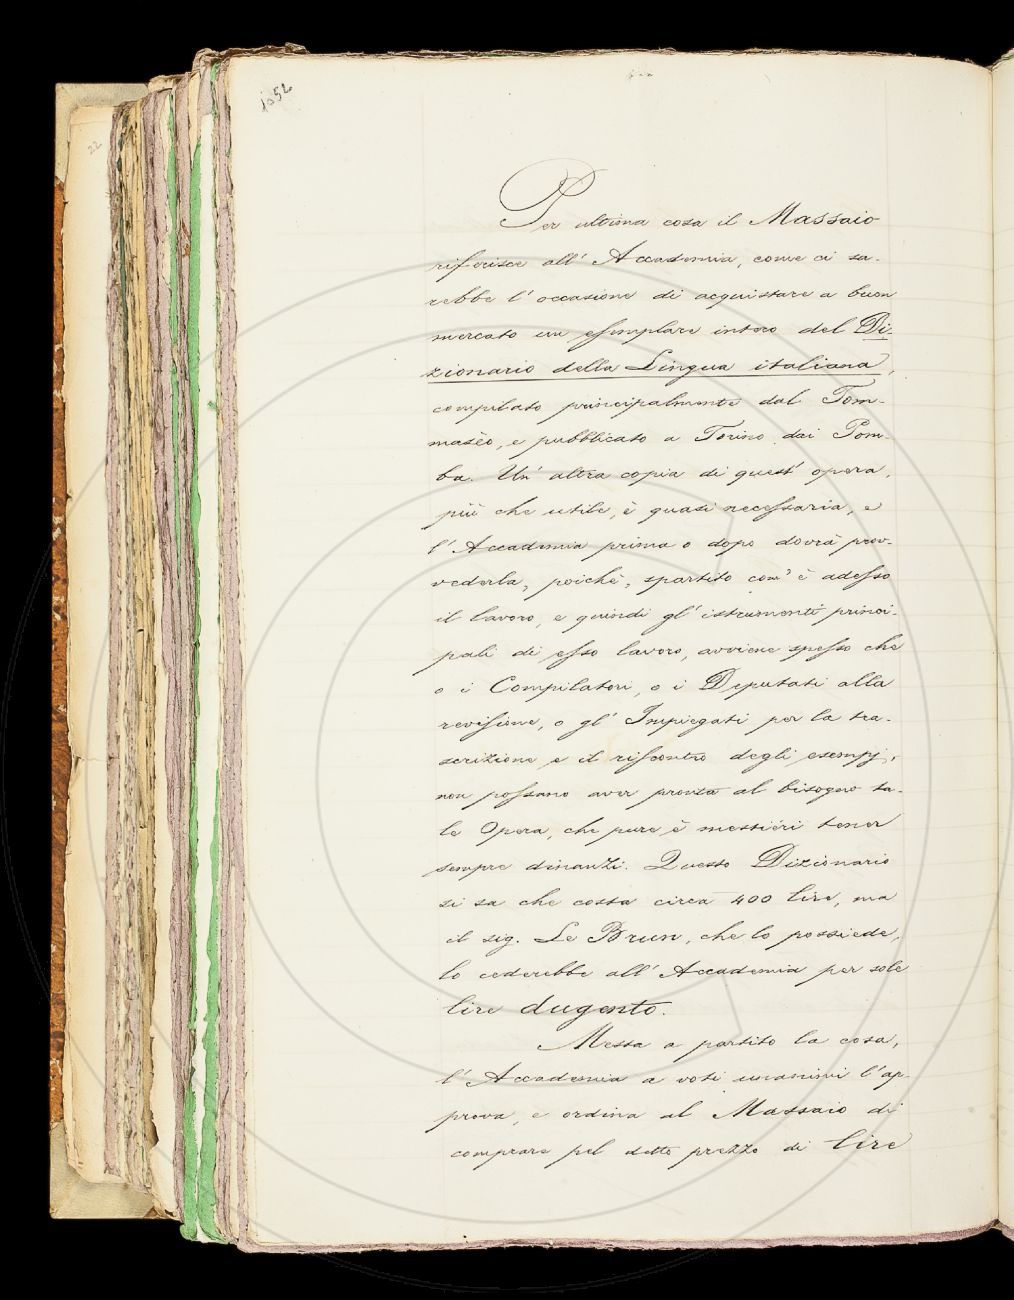 1052
22
Per ultima cosa il Massaio
riferisce all' Accademia, come ci sa-
rebbe l' occasione di acquistare a buon
mercato un esemplare intero del Di-
zionario della Lingua italiana,
compilato principalmente dal Tom-
masèo, e pubblicato a Torino dai Pom-
ba. Un' altra copia di quest' opera,
più che utile, è quasi necessaria, e
l' Accademia prima o dopo dovrà prov-
vederla, poichè, spartito com' è adesso
il lavoro, e quindi gl' istrumenti princi-
pali di esso lavoro, avviene spesso che
o i Compilatori, o i Deputati alla
revisione, o gl' Impiegati per la tra-
scrizione e il riscontro degli esempj,
non possano aver pronta al bisogno ta-
le Opera, che pure è mestieri tener
sempre dinanzi. Questo Dizionario
si sa che costa circa 400 lire, ma
il sig. Le Brun, che lo possiede,
lo cederebbe all' Accademia per sole
lire dugento.
Messa a partito la cosa,
l' Accademia a voti unanimi l' ap-
prova, e ordina al Massaio di
comprare pel detto prezzo di lire